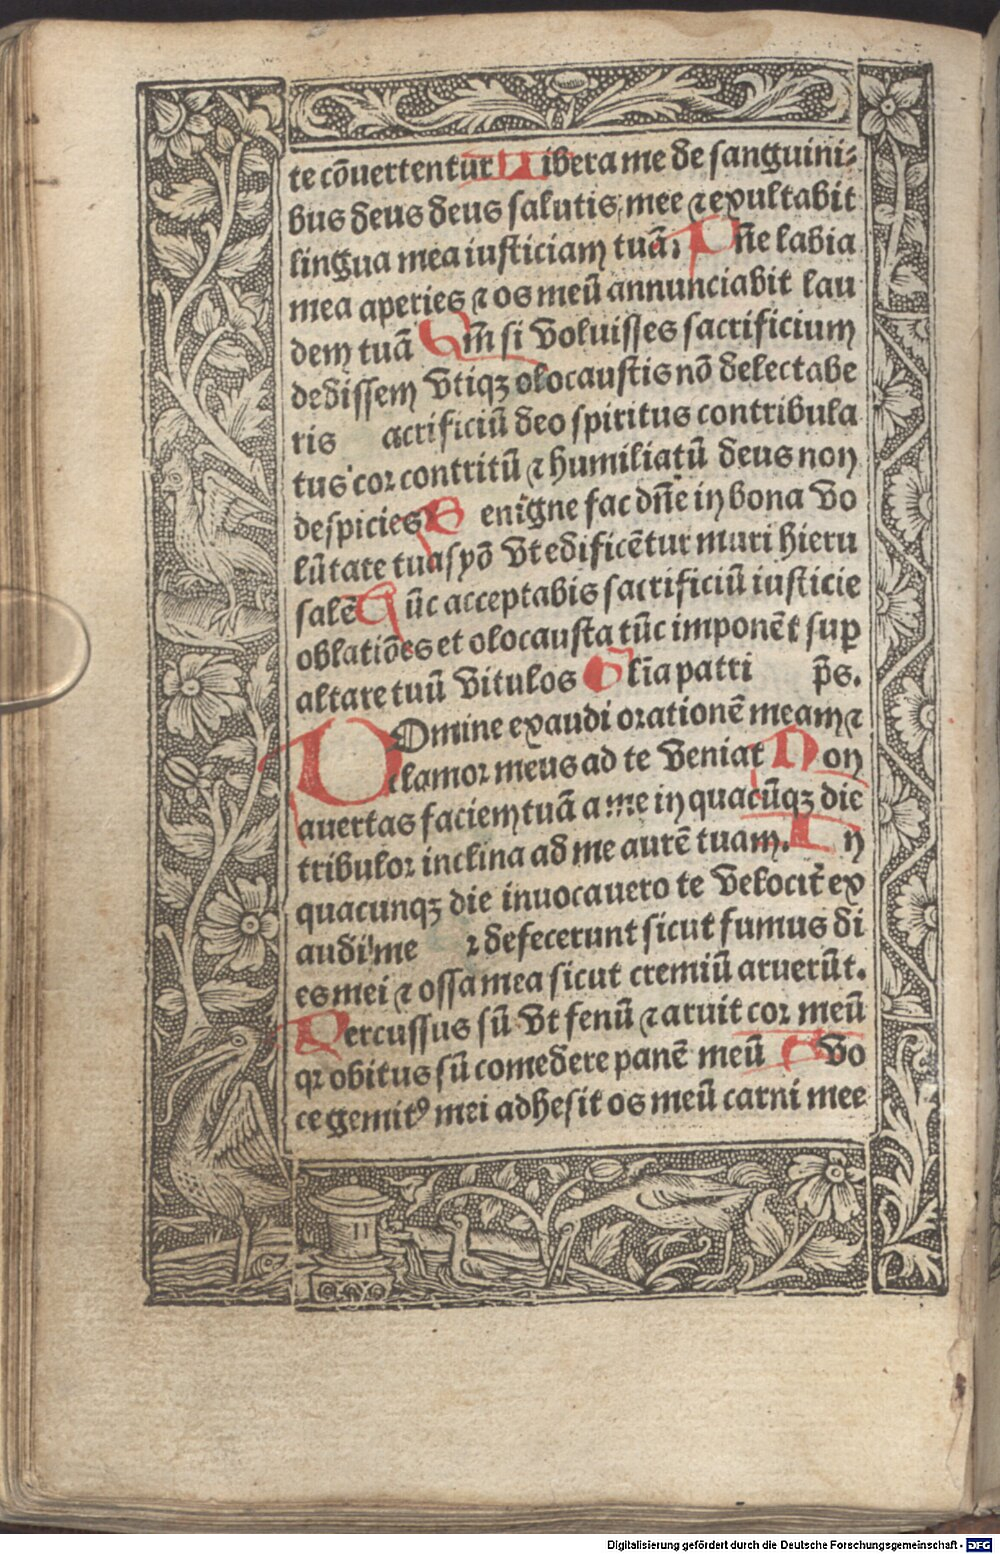 te cōuertentur Libera me de sanguini⸗
bus deus deus salutis mee ⁊ exultabit
lingua mea iusticiam tuā: Dn̄e labia
mea aperies ⁊ os meū annunciabit lau
dem tuā Qm̄ si voluisses sacrificium
dedissem vtiqꝫ olocaustis nō delectabe
ris acrificiū deo spiritus contribula
tus cor contritū ⁊ humiliatū deus non
despicies Benigne fac dn̄e in bona vo
lūtate tua syō vt edificētur muri hieru
salē Tūc acceptabis sacrificiū iusticie
oblatiōes et olocausta tūc imponēt suꝑ
altare tuū vitulos Gl̄ia patri p̄s.
DOmine exaudi orationē meam ⁊
clamor meus ad te veniat Non
auertas faciem tuā a me in quacūqꝫ die
tribulor inclina ad me aurē tuam. In
quacunqꝫ die inuocauero te velocit̄ ex
audi me ꝛ defecerunt sicut fumus di
es mei ⁊ ossa mea sicut cremiū aruerūt.
Percussus sū vt fenū ⁊ aruit cor meū
qꝛ obitus sū comedere panē meū A vo
ce gemitꝰ mei adhesit os meū carni mee
Digitalisierung gefördert durch die Deutsche Forschungsgemeinschaft - DFG